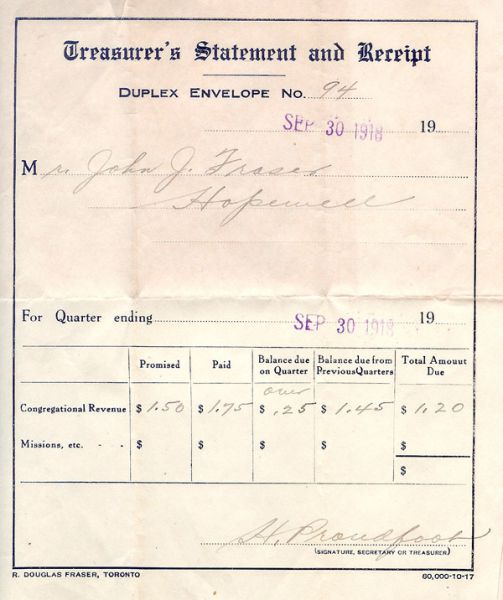 Treasurer's Statement and Receipt
DUPLEX ENVELOPE NO. 94
SEP 30 1918 19
Mr. John J. Fraser
Hopewell
For Quarter ending SEP 30 1918 19
Promised Paid Balance due on Quarter Balance due from Previous Quarters Total Amount Due
over
Congregational Revenue $ 1.50 $ 1.75 $ .25 $ 1.45 $ 1.20
Missions, etc. - - $ $ $ $ $
$
H. Proudfoot
(SIGNATURE, SECRETARY OR TREASURER)
R. DOUGLAS FRASER, TORONTO 60,000-10-17